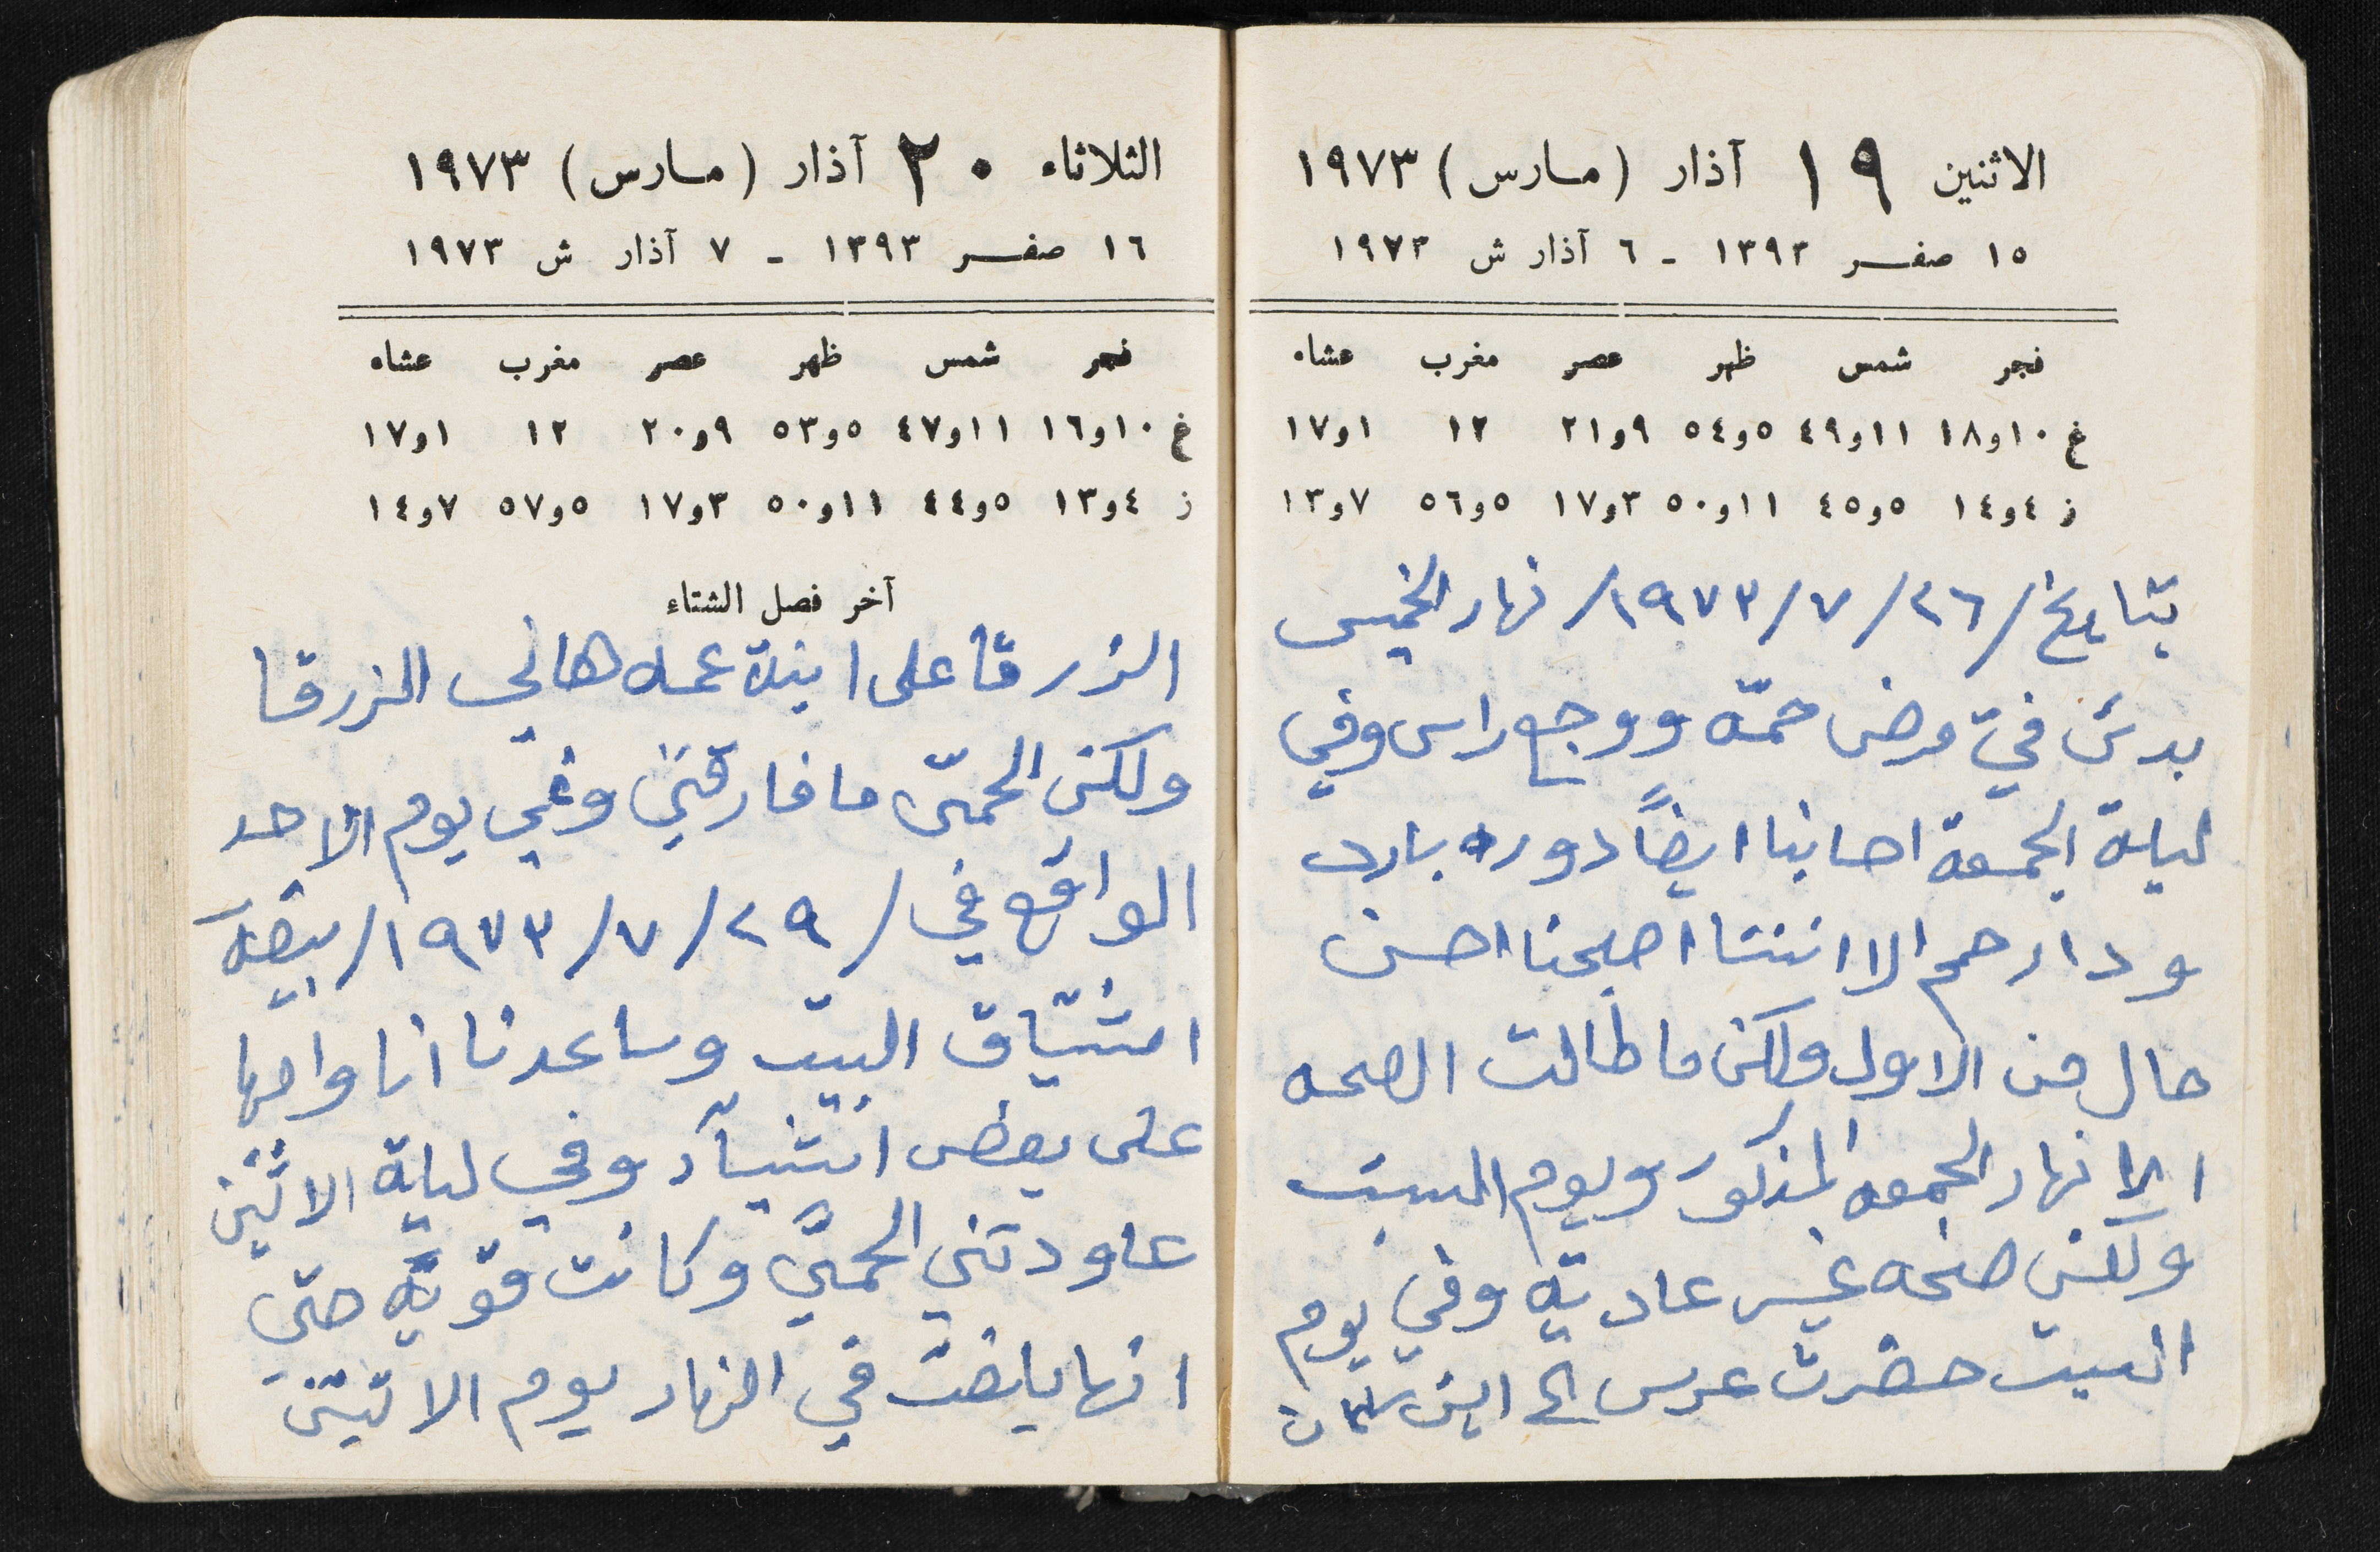 الاثنين ١٩ آذار (مارس) ١٩٧٣
١٥ صفر ١٣٩٣ - ٦ آذار ش ١٩٧٣
فجر شمس ظهر عصر مغرب عشاء
غ ١٠و١٨ ١١و٤٩ ٥و٥٤ ٩و٢١ ١٢ ١و١٧
ز ٤و١٤ ٥و٤٥ ١١و٥٠ ٣و١٧ ٥و٥٦ ٧و١٣
بتاريخ /٢٦/٧/١٩٧٣/ نهار الخميس
بدئ فيّ مرض حمّه ووجع راس وفي
ليلة الجمعة اصابنا ايضاً دوره بارد
ودارحم الا اننتا اصبحنا احسن
حال من الاول ولكن ما طالت الصحه
الا نهار الجمعه المذكور ويوم السبت
ولكني صحه غير عادية وفي يوم
السبت حضرت عرس الى ابن سلمان
الثلاثاء ٢٠ آذار (مارس) ١٩٧٣
١٦ صفر ١٣٩٣ - ٧ آذار ش ١٩٧٣
فجر شمس ظهر عصر مغرب عشاء
غ ١٠و١٦ ١١و٤٧ ٥و٥٣ ٩و٢٠ ١٢ ١و١٧
ز ٤و١٣ ٥و٤٤ ١١و٥٠ ٣و١٧ ٥و٥٧ ٧و١٤
آخر فصل الشتاء
الزرقا على ابنة عمه هاني الزرقا
ولكن الحمّى ما فارقتني وفي يوم الاحد
الواقع في /٢٩/٧/١٩٧٣/
البيت وساعدنا انا وامها
على بعض اشيآء وفي ليلة الاثنين
عاودتني الحمّي وكانت قوّيّة حتى
انها يابضت في النهار يوم الاثنين